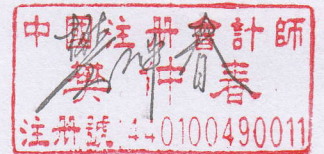 中國註冊會計師
樊仲春
注册號:440100490011